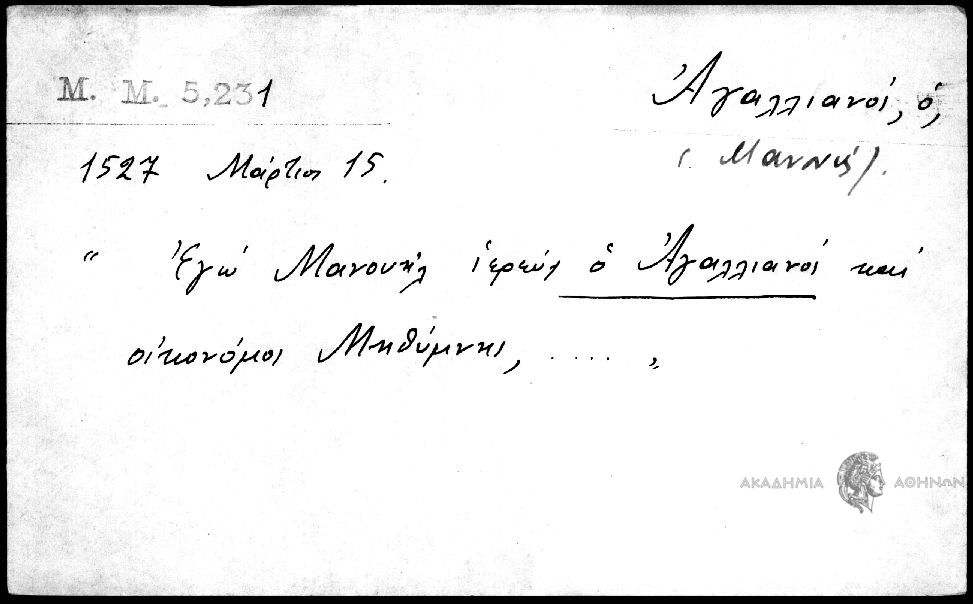 Μ. Μ. 5,231
Ἀγαλλιανός, ὁ,
1527 Μάρτιος 15.
" Ἐγὼ Μανουὴλ ἱερεὺς ὁ Ἀγαλλιανός καὶ
οἰκονόμος Μηθύμνης, ..... "
ΑΚΑΔΗΜΙΑ ΑΘΗΝΩΝ